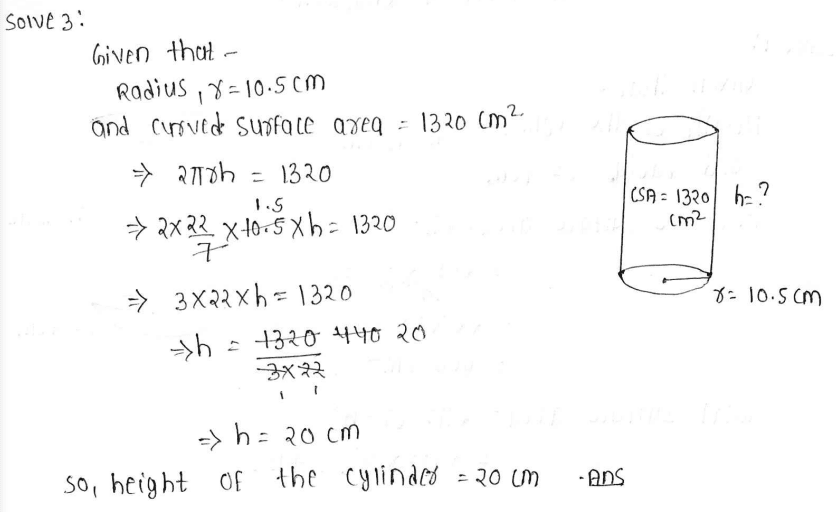 Solve 3:
Given that -
Radius, r = 10.5 cm
and curved surface area = 1320 cm²
⇒ 2πrh = 1320
1.5
⇒ 2 × 22/7 × 10.5 × h = 1320
⇒ 3 × 22 × h = 1320
⇒ h = 1320 440 20
3 × 22
1 1
⇒ h = 20 cm
So, height of the cylinder = 20 cm - Ans
CSA = 1320 cm²
h = ?
r = 10.5 cm